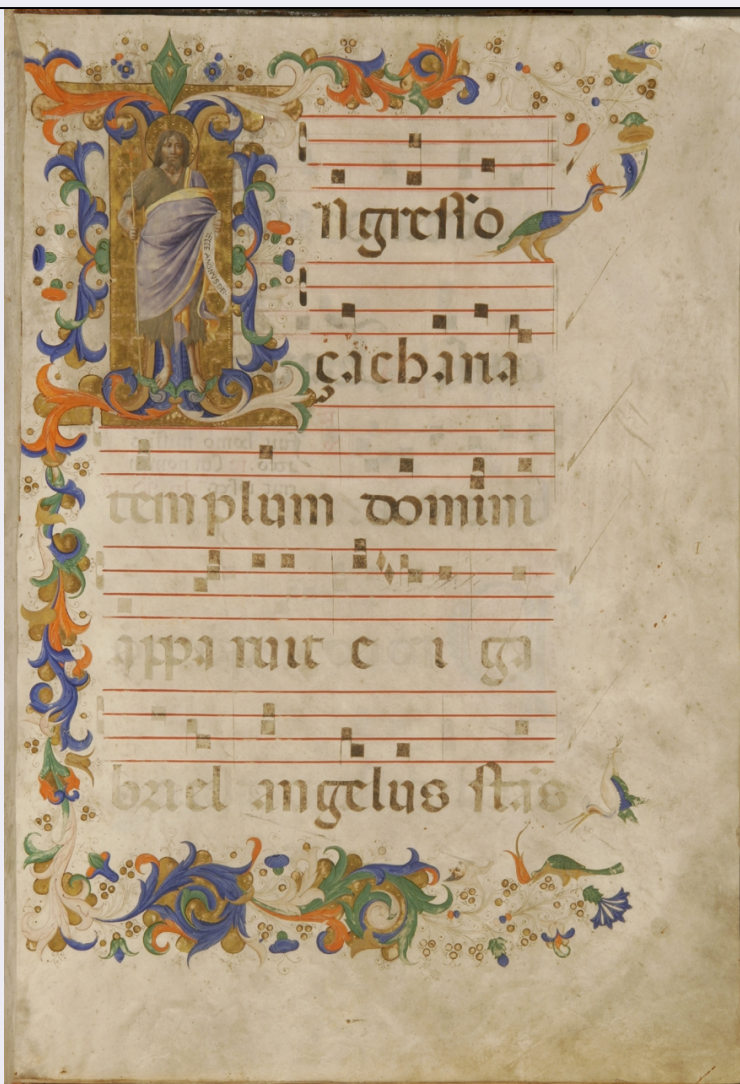 Ingresso
çacharia
templum domini
apparuit ei ga
briel angelus stās
ECCE AGNUS